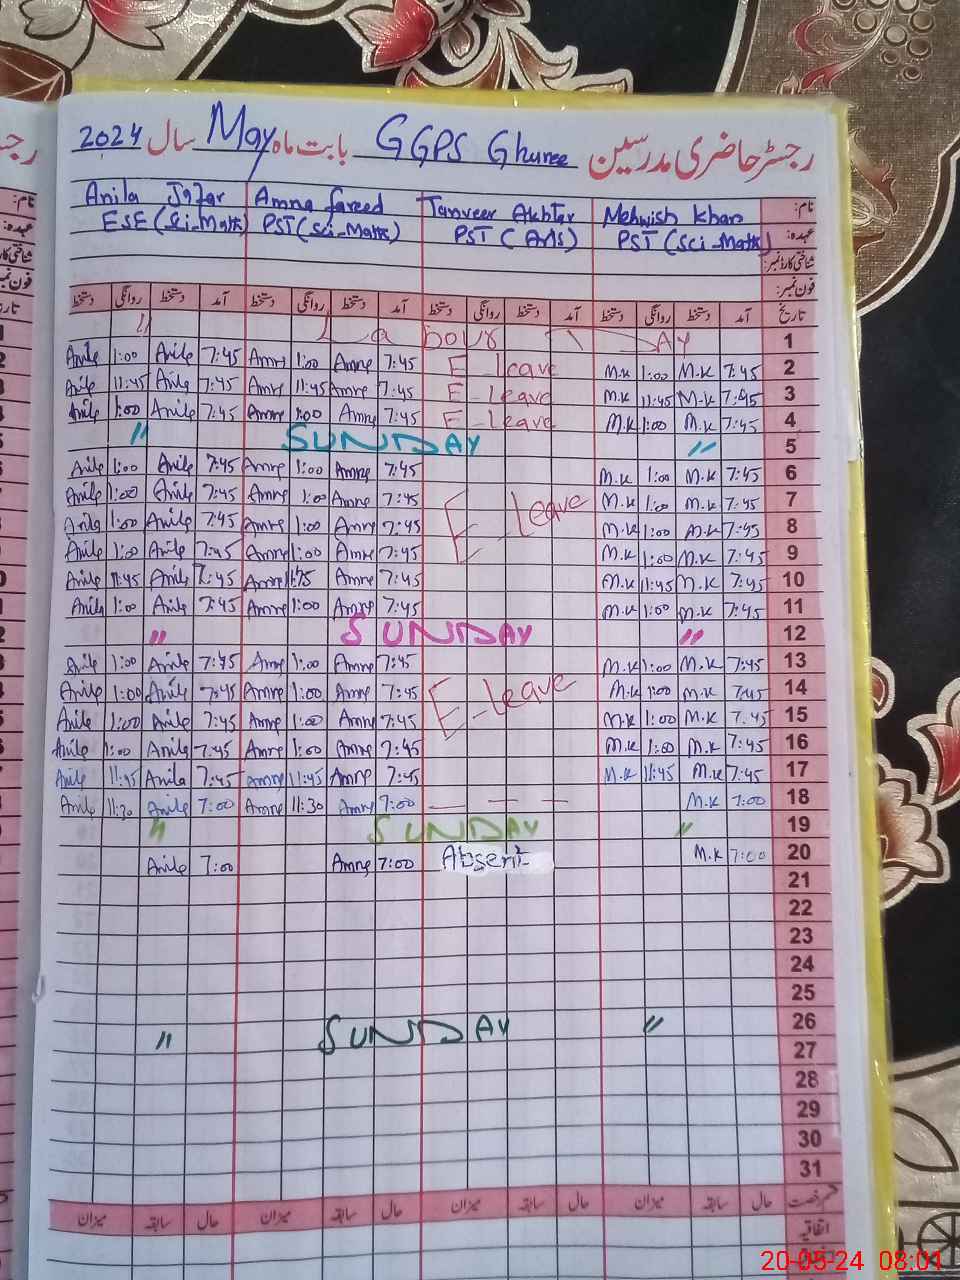 رجسٹر حاضری مدرسین GGPS Ghuree بابت ماہ May سال 2024
نام: Mehwish Khan Tanveer Akhtar Amna fareed Anila Jafar
عہدہ: PST (Sci-Maths) PST (Arts) PST (Sci-Maths) ESE (Sci-Maths)
شناختی کارڈ نمبر:
فون نمبر:
تاریخ آمد دستخط روانگی دستخط آمد دستخط روانگی دستخط آمد دستخط روانگی دستخط آمد دستخط روانگی دستخط
1 Labour DAY "
2 7:45 M.K 1:00 M.K E-leave 7:45 Amna 1:00 Amna 7:45 Anila 1:00 Anila
3 7:45 M.K 11:45 M.K E-leave 7:45 Amna 11:45 Amna 7:45 Anila 11:45 Anila
4 7:45 M.K 1:00 M.K E-leave 7:45 Amna 1:00 Amna 7:45 Anila 1:00 Anila
5 " SUNDAY "
6 7:45 M.K 1:00 M.K 7:45 Amna 1:00 Amna 7:45 Anila 1:00 Anila
7 7:45 M.K 1:00 M.K E-Leave 7:45 Amna 1:00 Amna 7:45 Anila 1:00 Anila
8 7:45 M.K 1:00 M.K 7:45 Amna 1:00 Amna 7:45 Anila 1:00 Anila
9 7:45 M.K 1:00 M.K 7:45 Amna 1:00 Amna 7:45 Anila 1:00 Anila
10 7:45 M.K 11:45 M.K 7:45 Amna Amna 7:45 Anila 11:45 Anila
11 7:45 M.K 1:00 M.K 7:45 Amna 1:00 Amna 7:45 Anila 1:00 Anila
12 " SUNDAY "
13 7:45 M.K 1:00 M.K 7:45 Amna 1:00 Amna 7:45 Anila 1:00 Anila
14 7:45 M.K 1:00 M.K E-Leave 7:45 Amna 1:00 Amna 7:45 Anila 1:00 Anila
15 7:45 M.K 1:00 M.K 7:45 Amna 1:00 Amna 7:45 Anila 1:00 Anila
16 7:45 M.K 1:00 M.K 7:45 Amna 1:00 Amna 7:45 Anila 1:00 Anila
17 7:45 M.K 11:45 M.K 7:45 Amna 11:45 Amna 7:45 Anila 11:45 Anila
18 7:00 M.K — — — 7:00 Amna 11:30 Amna 7:00 Anila 11:30 Anila
19 " SUNDAY "
20 7:00 M.K Absent 7:00 Amna 7:00 Anila
21
22
23
24
25
26 " SUNDAY "
27
28
29
30
31
قسم رخصت حال سابقہ میزان حال سابقہ میزان حال سابقہ میزان حال سابقہ میزان
اتفاقیہ
20-05-24 08:01